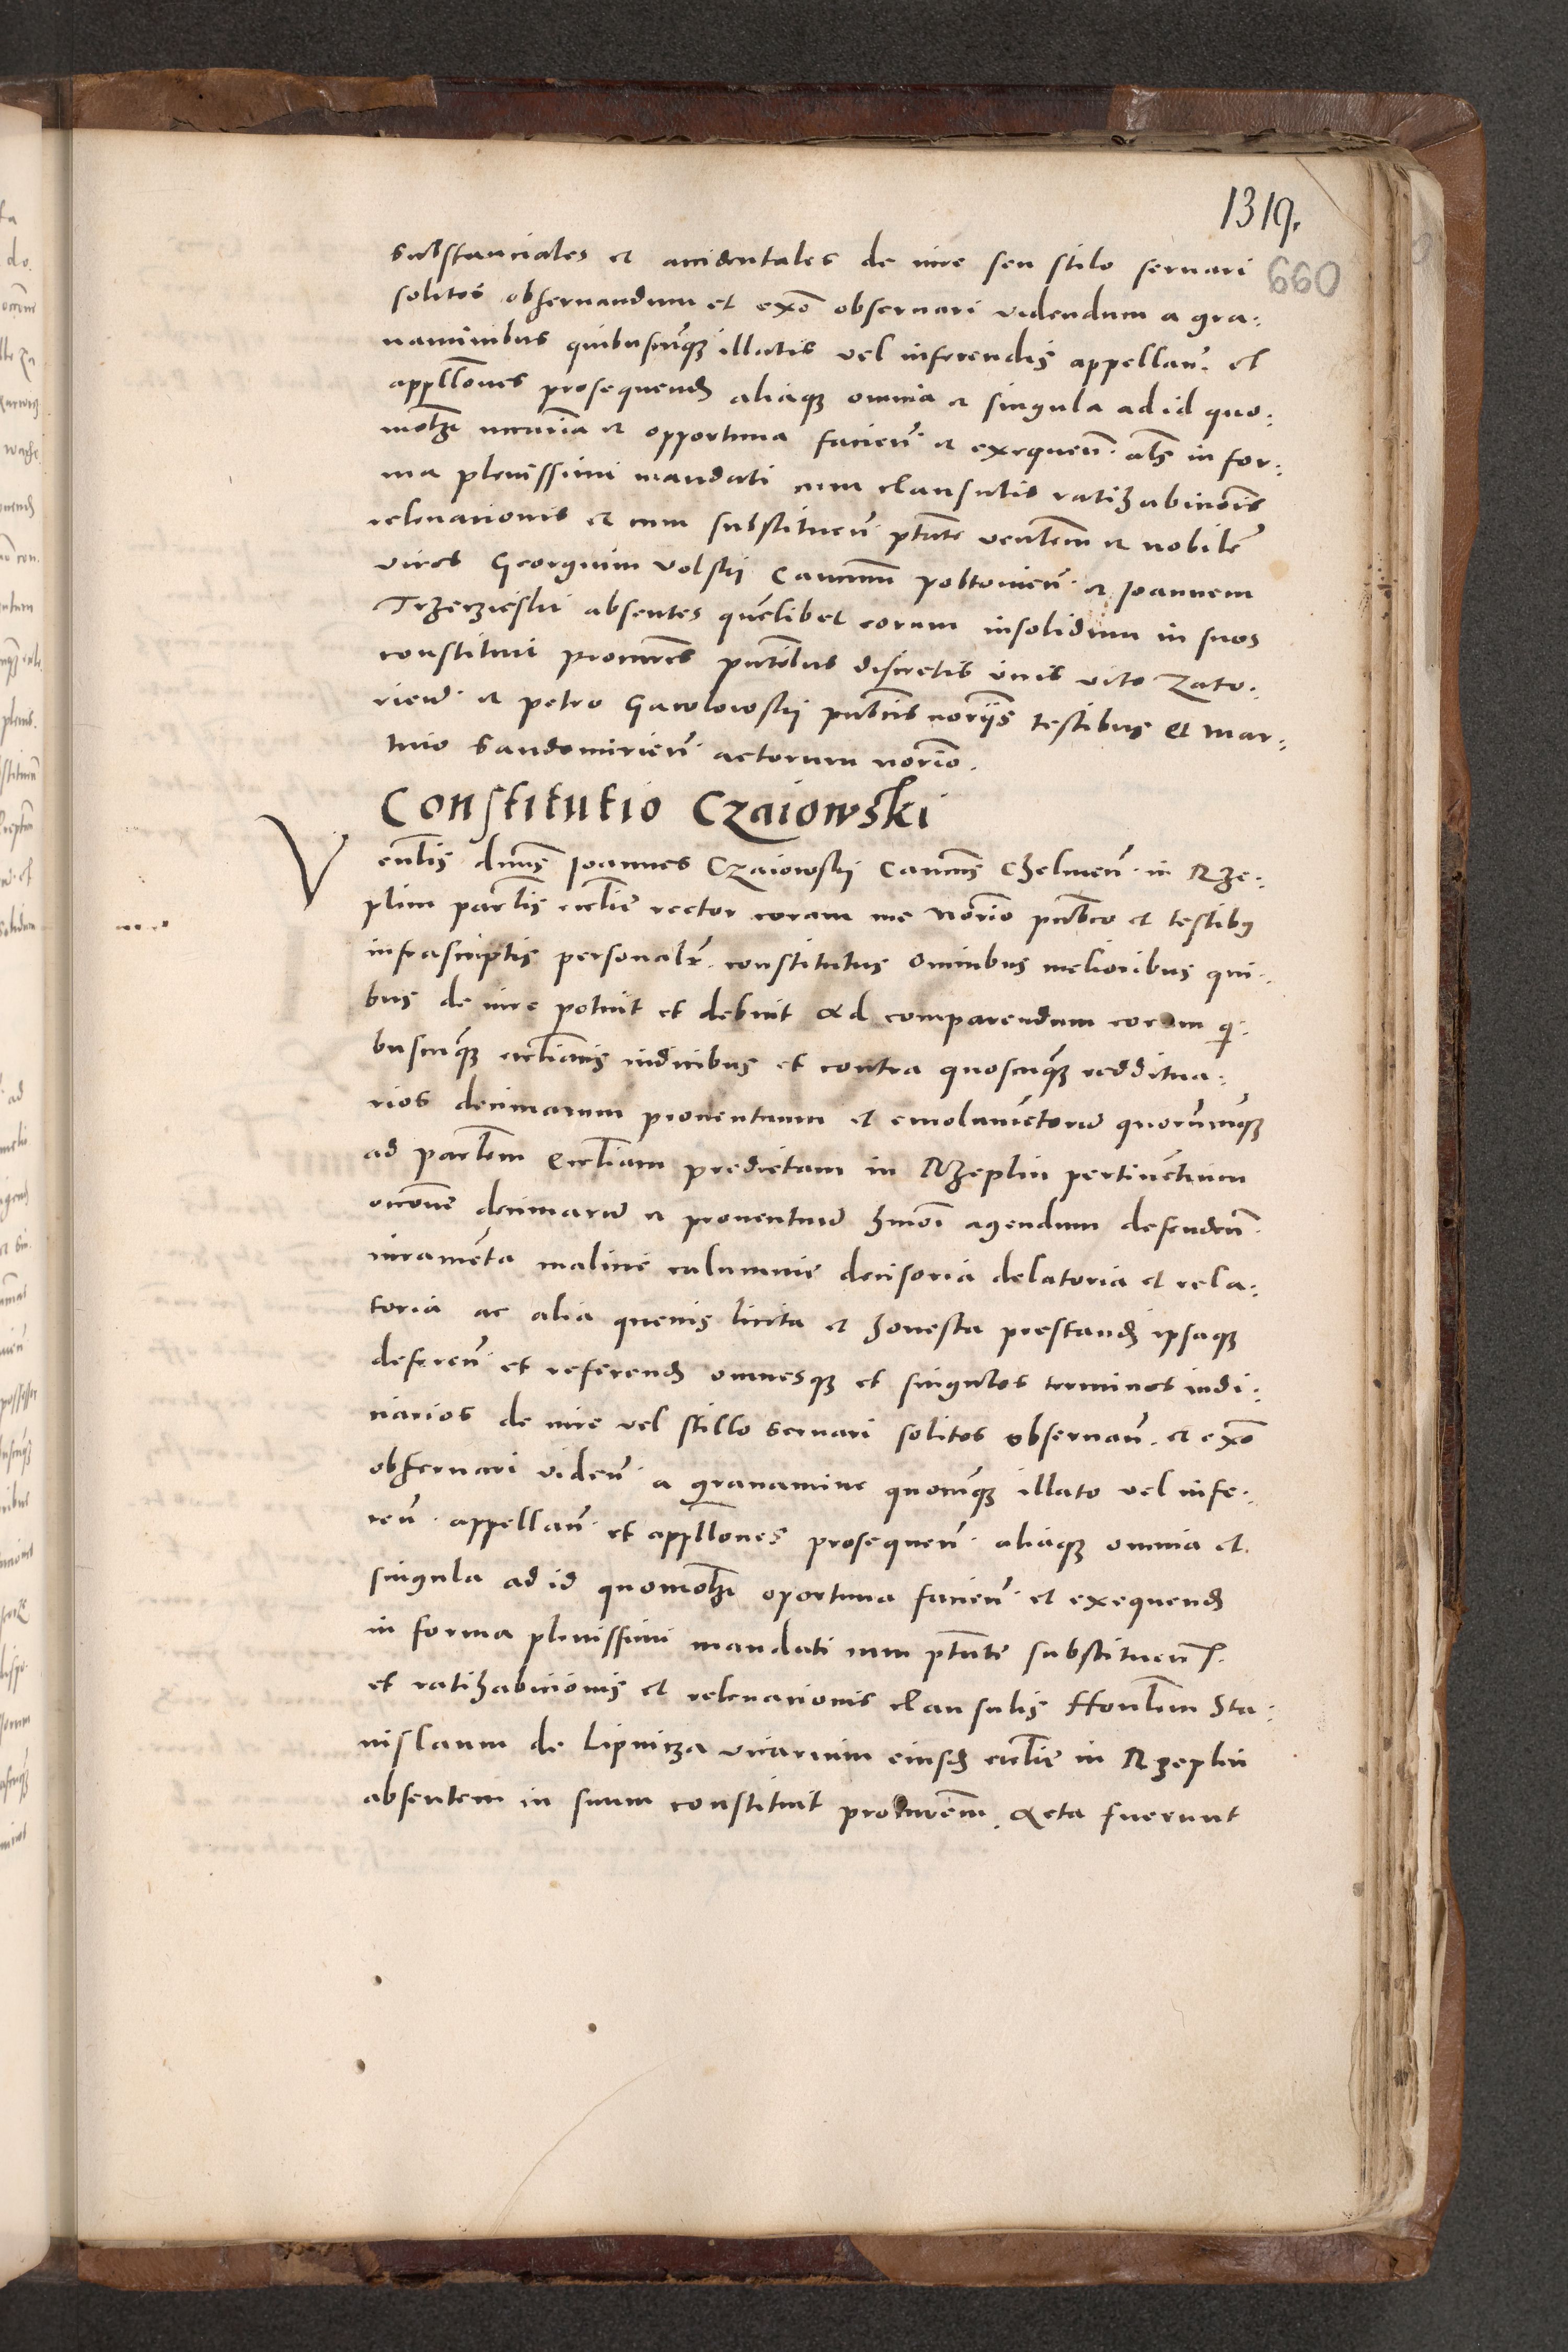 1319.
660
substanciales et accidentales de iure seu stilo servari
solitos observandum et exñ observari videndum a gra:
vaminibus quibuscunq3 illatis vel inferendis appellan̄. et
appellones prosequend aliaq3 omnia et singula ad id quo:
molz nccaria et opportuna facien̄. et exequen̄. als in for:
ma plenissimi mandati cum clausulis ratihabicionis
relevacionis et cum substituen̄. ptate venlem et nobilem
viros Georgium Volski Canoncum poltovien̄. et Joannem
Trzeczieski absentes quelibet eorum insolidum in suos
constituit procures pntibus discretis viris vito Zato:
rien̄. et petro Gawlowskij publicis noriis testibus et Mar:
tino Sandomirien̄. actorum norio.
Constitutio Czaiowski
Venlis dnus Joannes Czaiowskij Canoncus Chelmen̄. in Rze:
plin parlis ecclie rector coram me Norio publico et testibus
infrascriptis personalr. constitutus omnibus melioribus qui:
bus de iure potuit et debuit Ad comparendum coram qui:
buscunq3 eccliacis iudicibus et contra quoscunq3 redditua:
rios decimarum proventuum et emolumetorum quorumcunq3
ad parlem Eccliam predictam in Rzeplin pertinetium
occone decimarum et proventuum hmoi agendum defenden̄.
iuramenta malicie calumnie decisoria delatoria et rela:
toria ac alia quevis licita et honesta prestand ipsaq3
deferen̄. et referend omnesq3 et singulos terminos iudi:
ciarios de iure vel stillo servari solitos observan̄. et exñ
observari viden̄. a gravamine quocunq3 illato vel infe:
ren̄. appellan̄. et appllones prosequen̄. aliaq3 omnia et
singula ad id quomolz oportuna facien̄. et exequend
in forma plenissimi mandati cum ptate substituen̄.
et ratihabicionis et relevacionis clausulis Honlem Sta:
nislaum de Lipnicza vicarium eiusd ecclie in Rzeplin
absentem in suum constituit procurem. Acta fuerunt